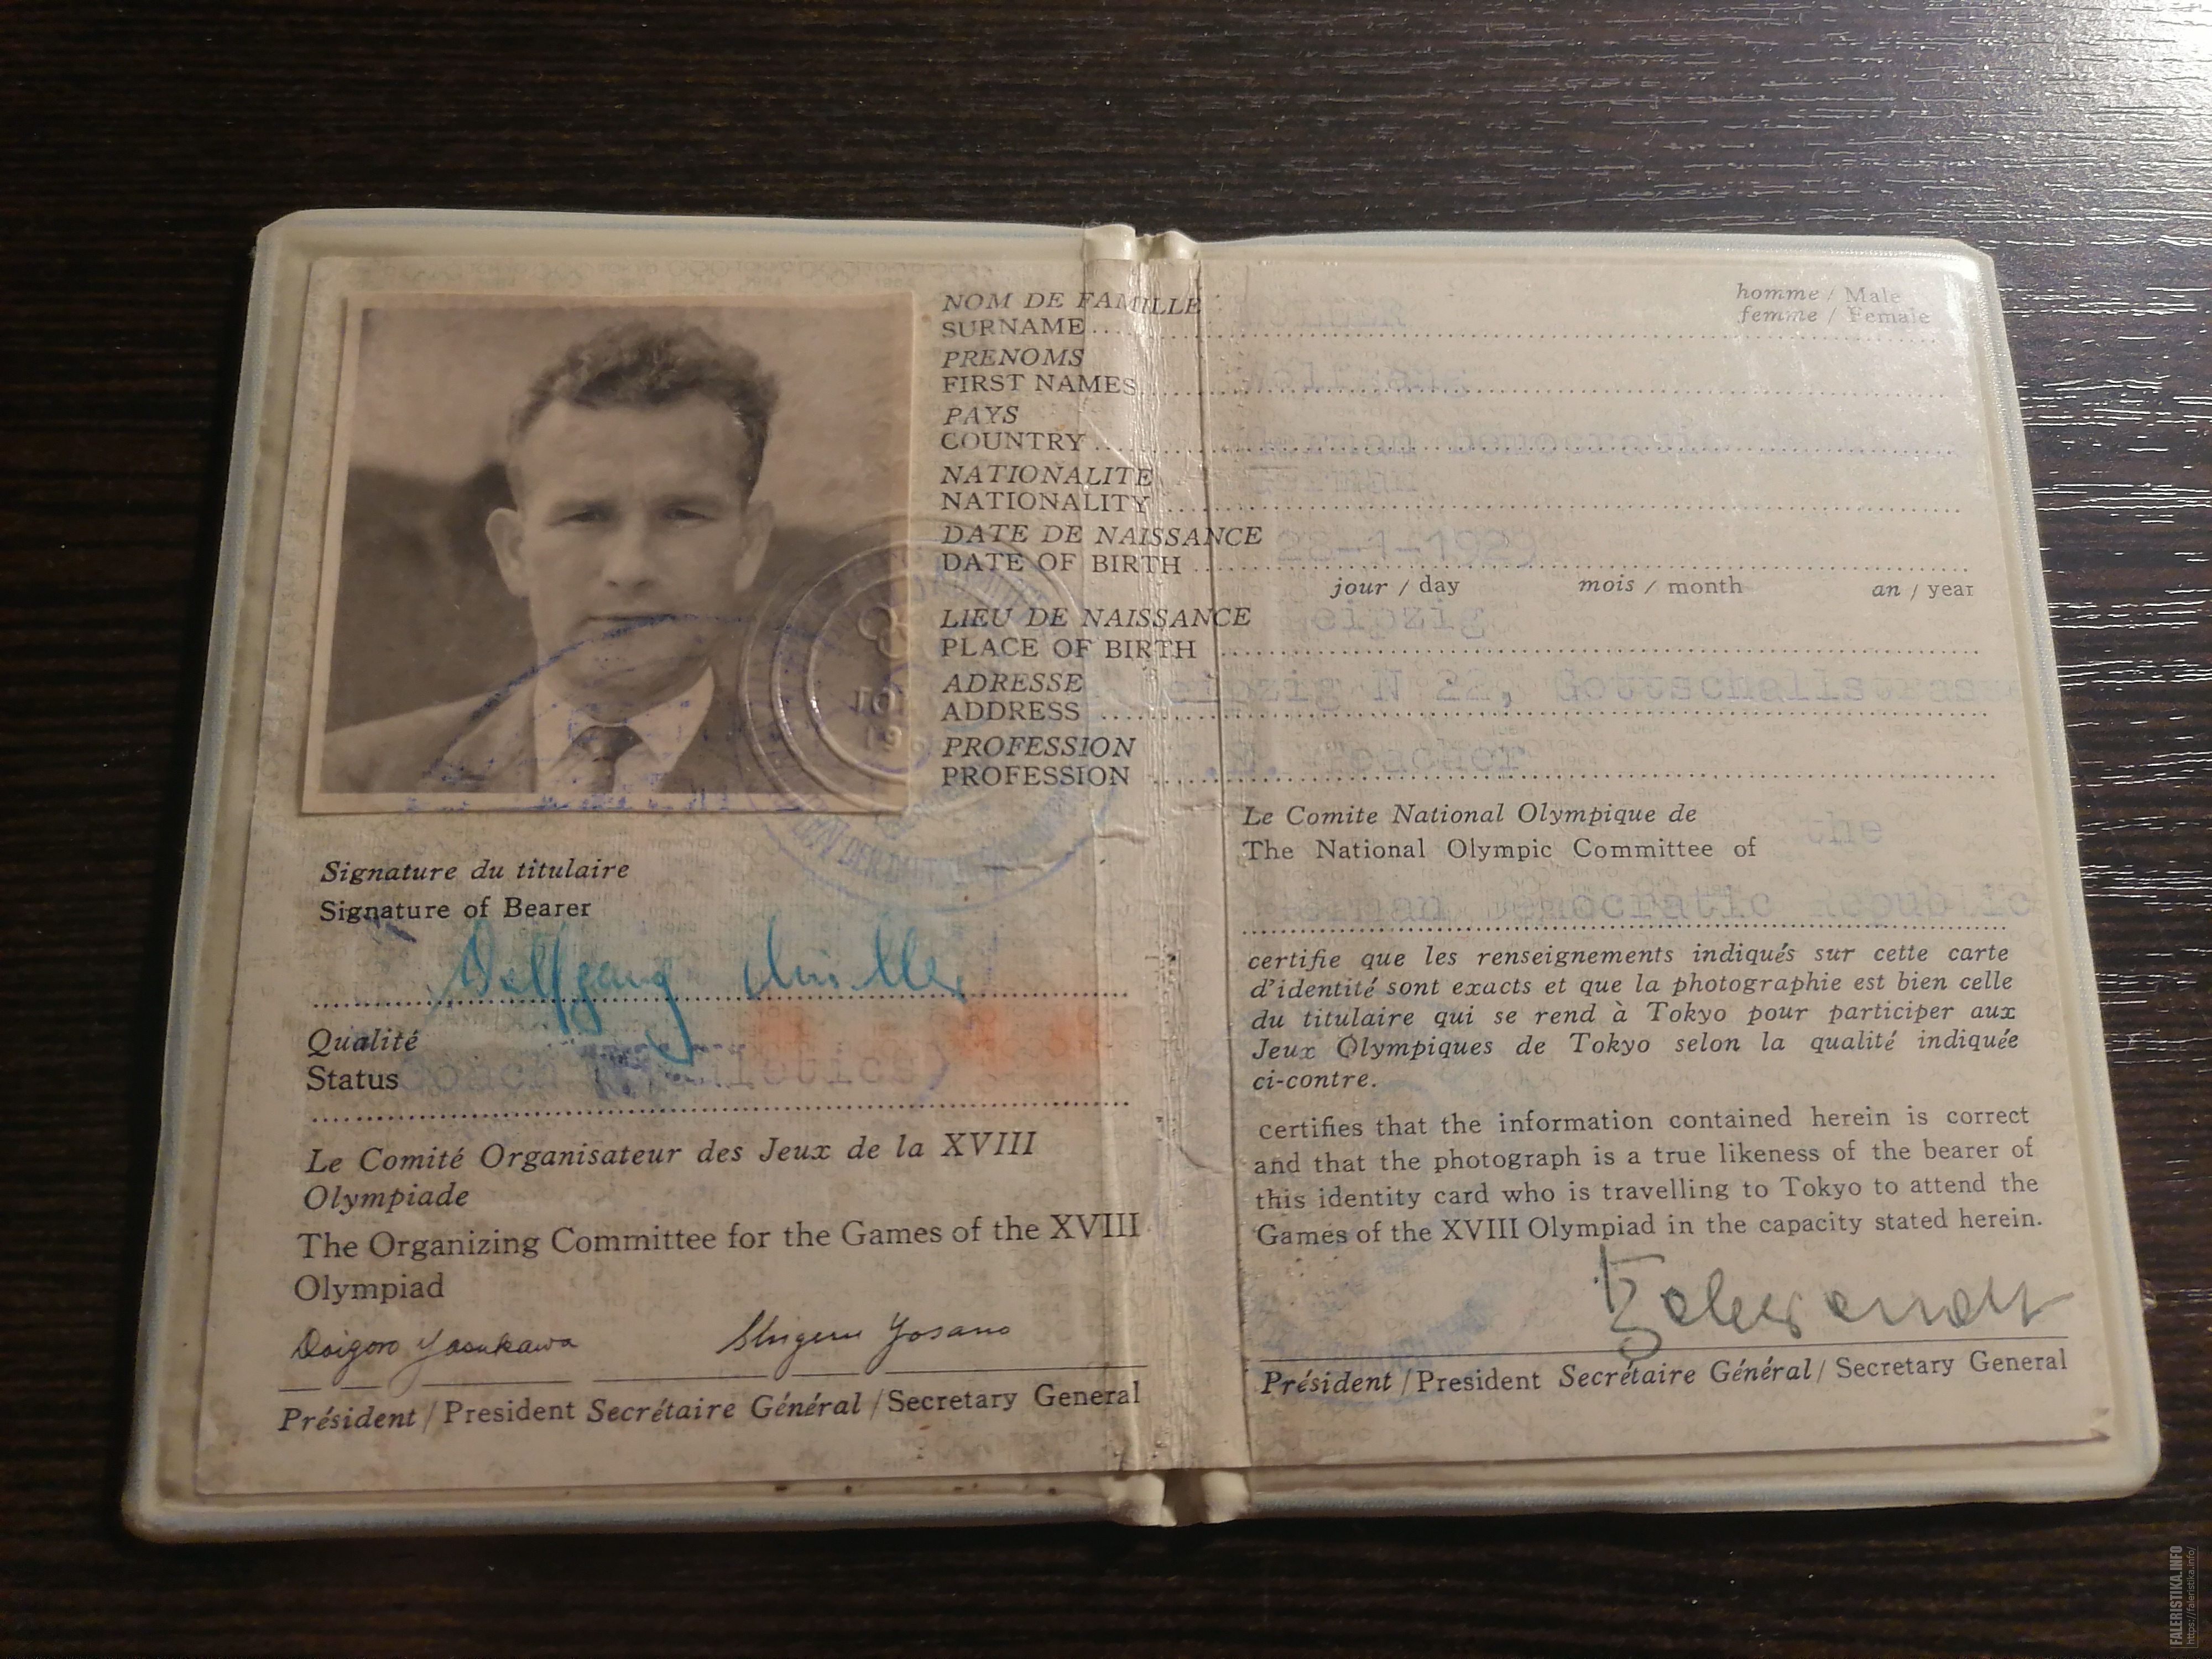 NOM DE FAMILLE
SURNAME
homme / Male
femme / Female
PRENOMS
FIRST NAMES
PAYS
COUNTRY
German Democratic
NATIONALITE
NATIONALITY
German
DATE DE NAISSANCE
DATE OF BIRTH
23-1-1929
jour / day mois / month an / year
LIEU DE NAISSANCE
PLACE OF BIRTH
Leipzig
ADRESSE
ADDRESS
Leipzig N 22,
PROFESSION
PROFESSION
Teacher
Signature du titulaire
Signature of Bearer
Wolfgang Müller
Qualité
Status
Coach
Le Comité Organisateur des Jeux de la XVIII
Olympiade
The Organizing Committee for the Games of the XVIII
Olympiad
Daigoro Yasukawa Shigeru Yosano
Président / President Secrétaire Général / Secretary General
Le Comite National Olympique de
The National Olympic Committee of
the
German Democratic Republic
certifie que les renseignements indiqués sur cette carte
d'identité sont exacts et que la photographie est bien celle
du titulaire qui se rend à Tokyo pour participer aux
Jeux Olympiques de Tokyo selon la qualité indiquée
ci-contre.
certifies that the information contained herein is correct
and that the photograph is a true likeness of the bearer of
this identity card who is travelling to Tokyo to attend the
Games of the XVIII Olympiad in the capacity stated herein.
Président / President Secrétaire Général / Secretary General
FALERISTIKA.INFO
https://faleristika.info/